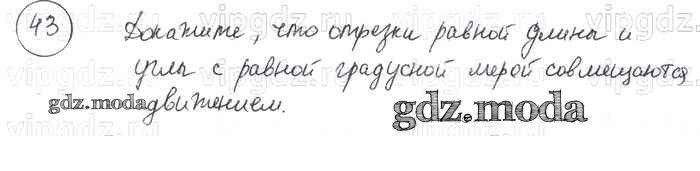 43 Докажите, что отрезки равной длины и
углы с равной градусной мерой совмещаются
gdz.moda движением. gdz.moda